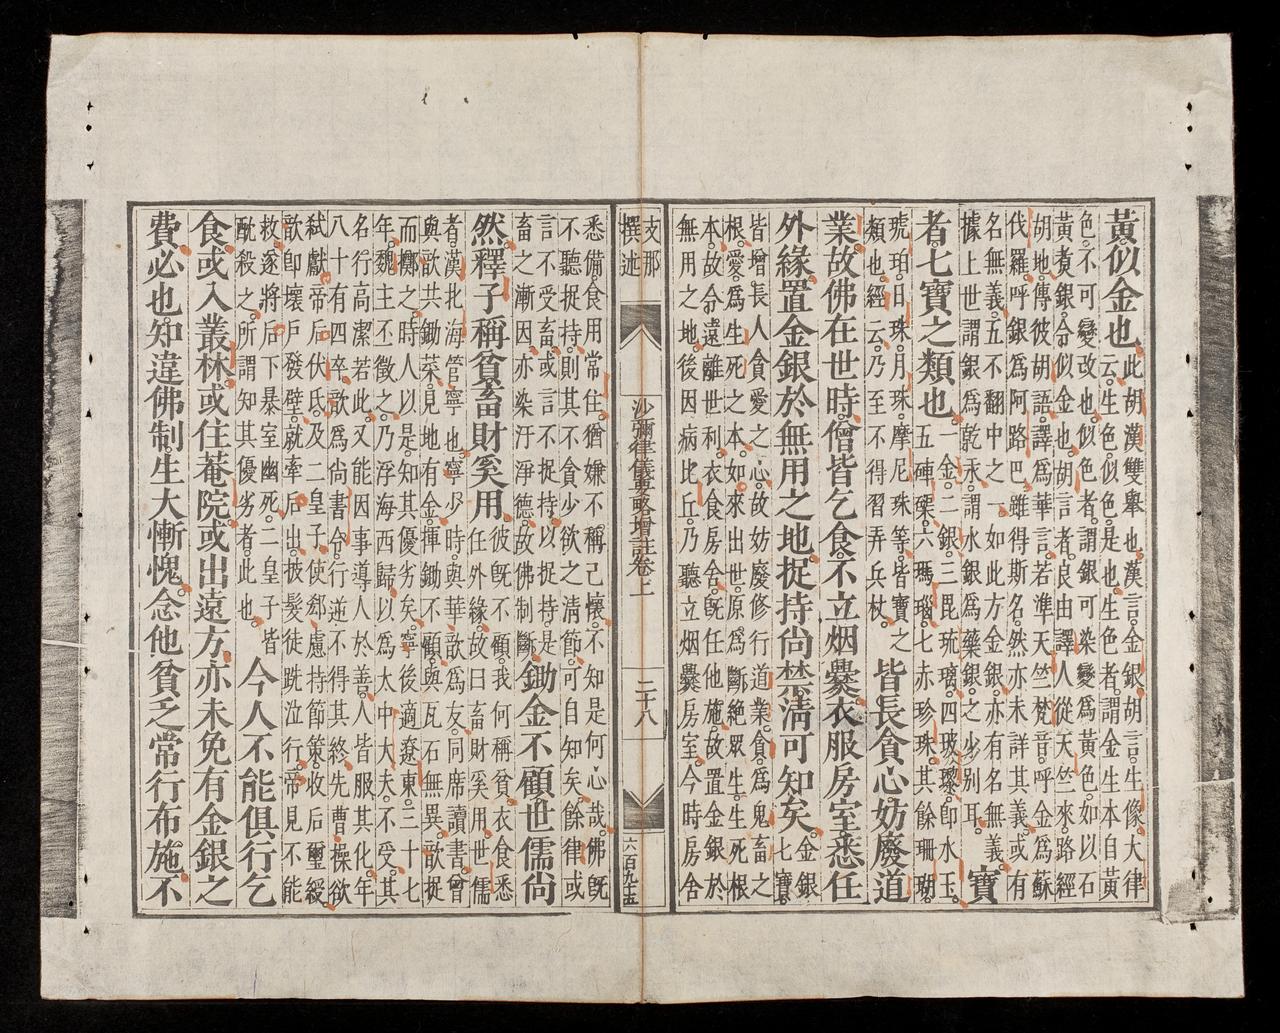 黃似金也。
此胡漢雙舉也。漢言金銀。胡言生像。大律
云。生色。似色。是也。生色者。謂金生本自黃
色。不可變改也。似色者。謂銀可染變為黃色。如以石
黃煑銀。令似金也。胡言者。良由譯人從天竺來。路經
胡地。傳彼胡語。譯為華言。若準天竺梵音。呼金為蘇
伐羅。呼銀為阿路巴。雖得斯名。然亦未詳其義。或有
名無義。五不翻中之一。如此方金銀。亦有名無義。
據上世謂銀為乾汞。謂水銀為藥銀之少別耳。
寶
者。七寶之類也。
一金。二銀。三毘琉璃。四玻瓈。卽水玉。
五硨磲。六瑪瑙。七赤珍珠。其餘珊瑚。
琥珀。日珠。月珠。摩尼珠等。皆寶之
類也。經云。乃至不得習弄兵杖。
皆長貪心妨廢道
業。故佛在世時。僧皆乞食。不立烟爨。衣服房室。悉任
外緣。置金銀於無用之地。捉持尚禁。清可知矣。
金銀
七寶。
皆增長人貪愛之心。故妨廢修行道業。貪為鬼畜之
根。愛為生死之本。如來出世。原為斷絕眾生。生死根
本。故令遠離世利。衣食房舍。旣任他施。故置金銀於
無用之地。後因病比丘。乃聽立烟爨房室。今時房舍
支那
撰述
沙彌律儀要略增註卷上
二十八
六百九十五
悉備。食用常住。猶嫌不稱己懷。不知是何心哉。佛旣
不聽捉持。則其不貪少欲之清節。可自知矣。餘律或
言不受畜。或言不捉持。以捉持。是
畜之漸因。亦染汙淨德。故佛制斷。
鋤金不顧。世儒尚
然。釋子稱貧。畜財奚用。
彼旣不顧。我何稱貧。衣食悉
任外緣。故曰畜財奚用。世儒
者。漢北海管寧也。寧少時。與華歆為友。同席讀書。曾
與歆共鋤菜。見地有金。揮鋤不顧。與瓦石無異。歆捉
而擲之。時人以是知其優劣矣。寧後適遼東。三十七
年。魏主丕徵之。乃浮海西歸。以為大中大夫。不受。其
名行高潔若此。又能因事導人於善。人皆服其化。年
八十有四卒。歆為尚書令。行逆不得其終。先曹操欲
弒獻帝后伏氏。及二皇子。使郄慮持節策收后璽綬。
歆卽壞戶發壁。就牽后出。披髮徒跣泣行。帝見不能
救。遂將后下暴室幽死。二皇子皆
酖殺之。所謂知其優劣者。此也。
今人不能俱行乞
食。或入叢林。或住菴院。或出遠方。亦未免有金銀之
費。必也知違佛制。生大慚愧。念他貧乏。常行布施。不